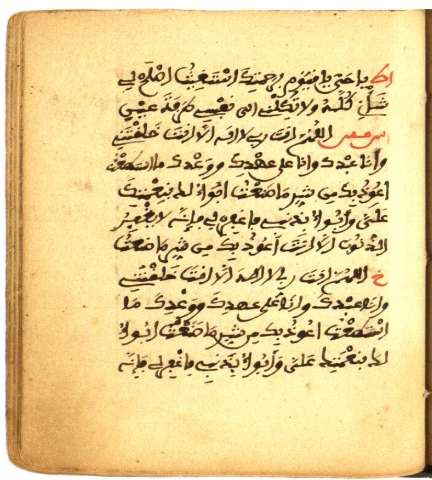 يا حي يا قيوم برحمتك استغيث اصلح لي
شأني كله ولا تكلني الى نفسي طرفة عين
اللهم انت ربي لا اله الا انت خلقتني
وأنا عبدك وانا على عهدك ووعدك ما استطعت
اعوذ بك من شر ما صنعت ابوء لك بنعمتك
علي وأبوء بذنبي فاغفر لي فإنه لا يغفر
الذنوب الا انت أعوذ بك من شر ما صنعت
خ اللهم انت ربي لا اله الا انت خلقتني
وانا عبدك وانا على عهدك ووعدك ما
استطعت اعوذ بك من شر ما صنعت ابوء
لك بنعمتك علي وأبوء بذنبي فاغفر لي فإنه